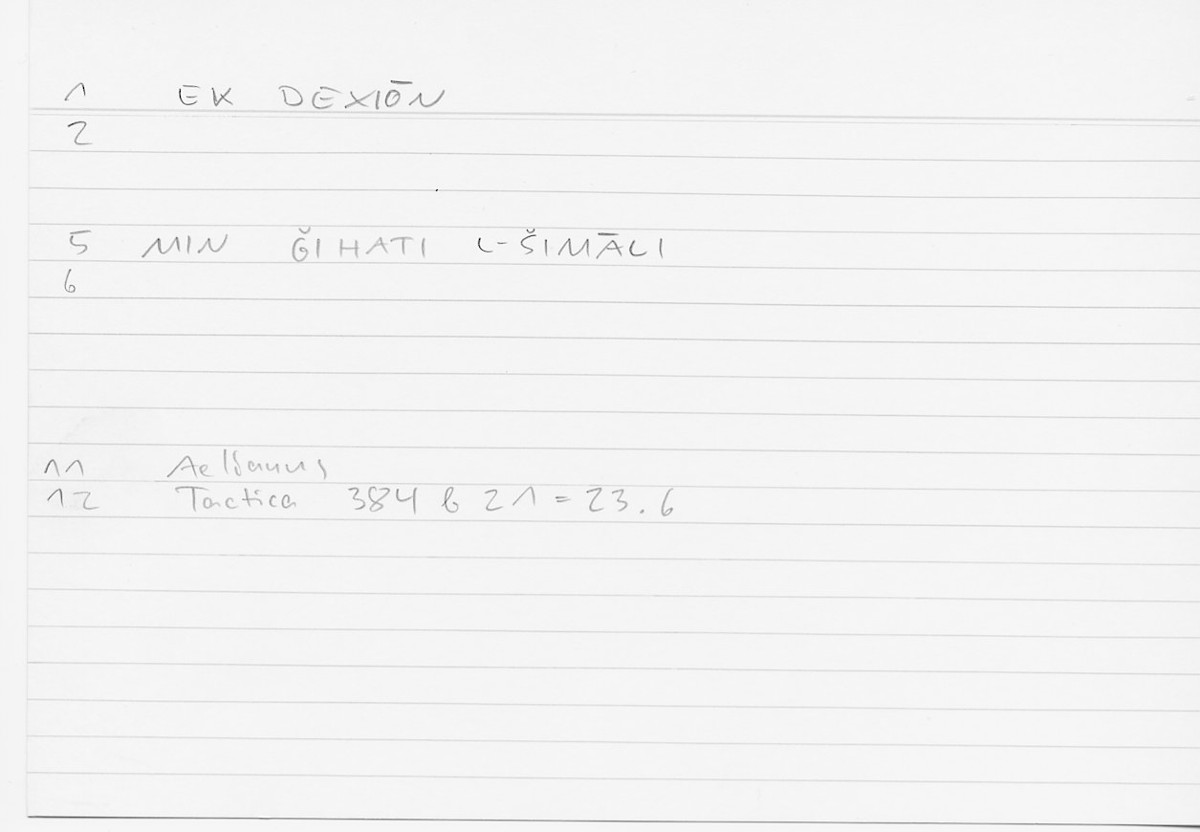 1 EK DEXIŌN
2
5 MIN ǦIHATI L-ŠIMĀLI
6
11 Aelianus
12 Tactica 384 b 21 = 23.6